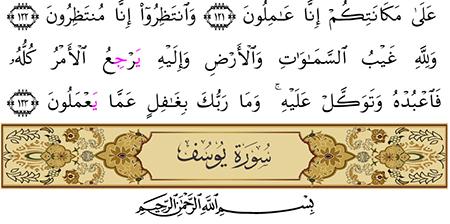 عَلَىٰ مَكَانَتِكُمْ إِنَّا عَٰمِلُونَ ﴿١٢١﴾ وَٱنتَظِرُوٓا۟ إِنَّا مُنتَظِرُونَ ﴿١٢٢﴾
وَلِلَّهِ غَيْبُ ٱلسَّمَٰوَٰتِ وَٱلْأَرْضِ وَإِلَيْهِ يَرْجِعُ ٱلْأَمْرُ كُلُّهُۥ
فَٱعْبُدْهُ وَتَوَكَّلْ عَلَيْهِ ۚ وَمَا رَبُّكَ بِغَٰفِلٍ عَمَّا يَعْمَلُونَ ﴿١٢٣﴾
سُورَةُ يُوسُفَ
بِسْمِ ٱللَّهِ ٱلرَّحْمَٰنِ ٱلرَّحِيمِ